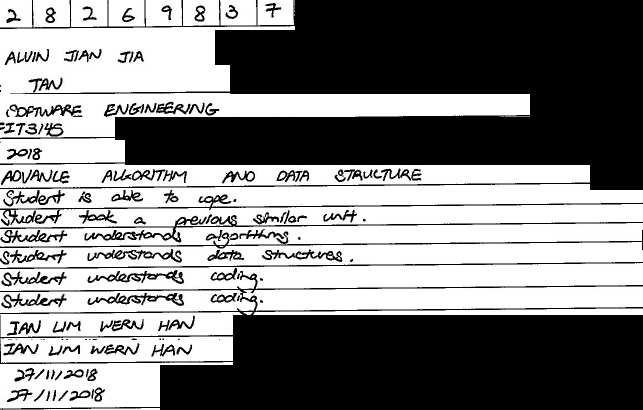 2 8 2 6 9 8 3 7
ALVIN JIAN JIA
: TAN
SOFTWARE ENGINEERING
FIT3145
2018
ADVANCE ALGORITHM AND DATA STRUCTURE
Student is able to cope.
Student took a previous similar unit.
Student understands algorithms.
Student understands data structures.
Student understands coding.
Student understands coding.
IAN LIM WERN HAN
IAN LIM WERN HAN
27/11/2018
27/11/2018